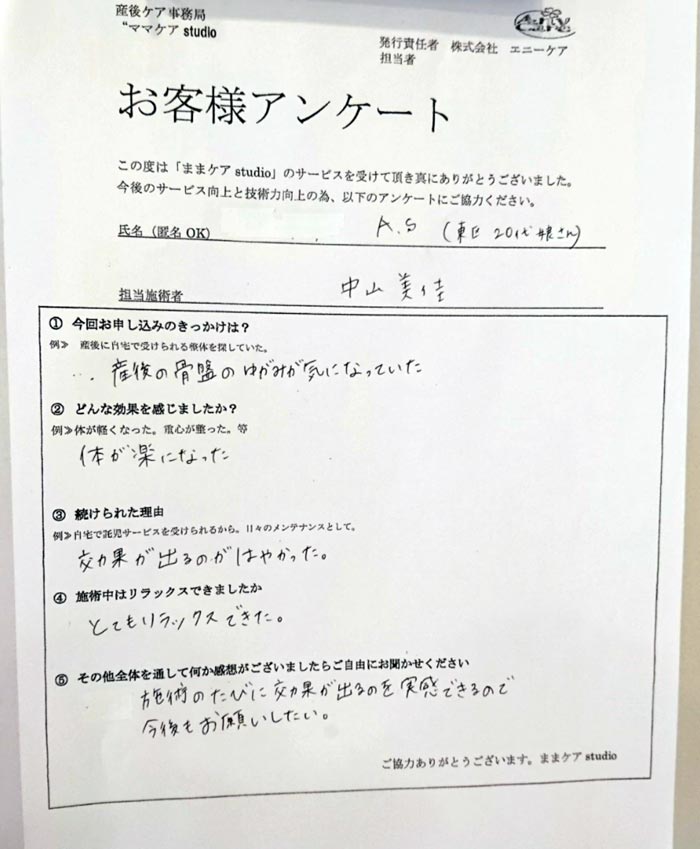 産後ケア事務局
“ママケア studio
発行責任者 株式会社 エニーケア
担当者
お客様アンケート
この度は「ままケア studio」のサービスを受けて頂き真にありがとうございました。
今後のサービス向上と技術力向上の為、以下のアンケートにご協力ください。
氏名（匿名 OK） A.S (東区 20代 娘さん)
担当施術者 中山 美佳
① 今回お申し込みのきっかけは？
例≫ 産後に自宅で受けられる整体を探していた。
産後の骨盤のゆがみが気になっていた
② どんな効果を感じましたか？
例≫体が軽くなった。重心が整った。等
体が楽になった
③ 続けられた理由
例≫自宅で託児サービスを受けられるから。日々のメンテナンスとして。
効果が出るのがはやかった。
④ 施術中はリラックスできましたか
とてもリラックスできた。
⑤ その他全体を通して何か感想がございましたらご自由にお聞かせください
施術のたびに効果が出るのを実感できるので
今後もお願いしたい。
ご協力ありがとうございます。ままケア studio